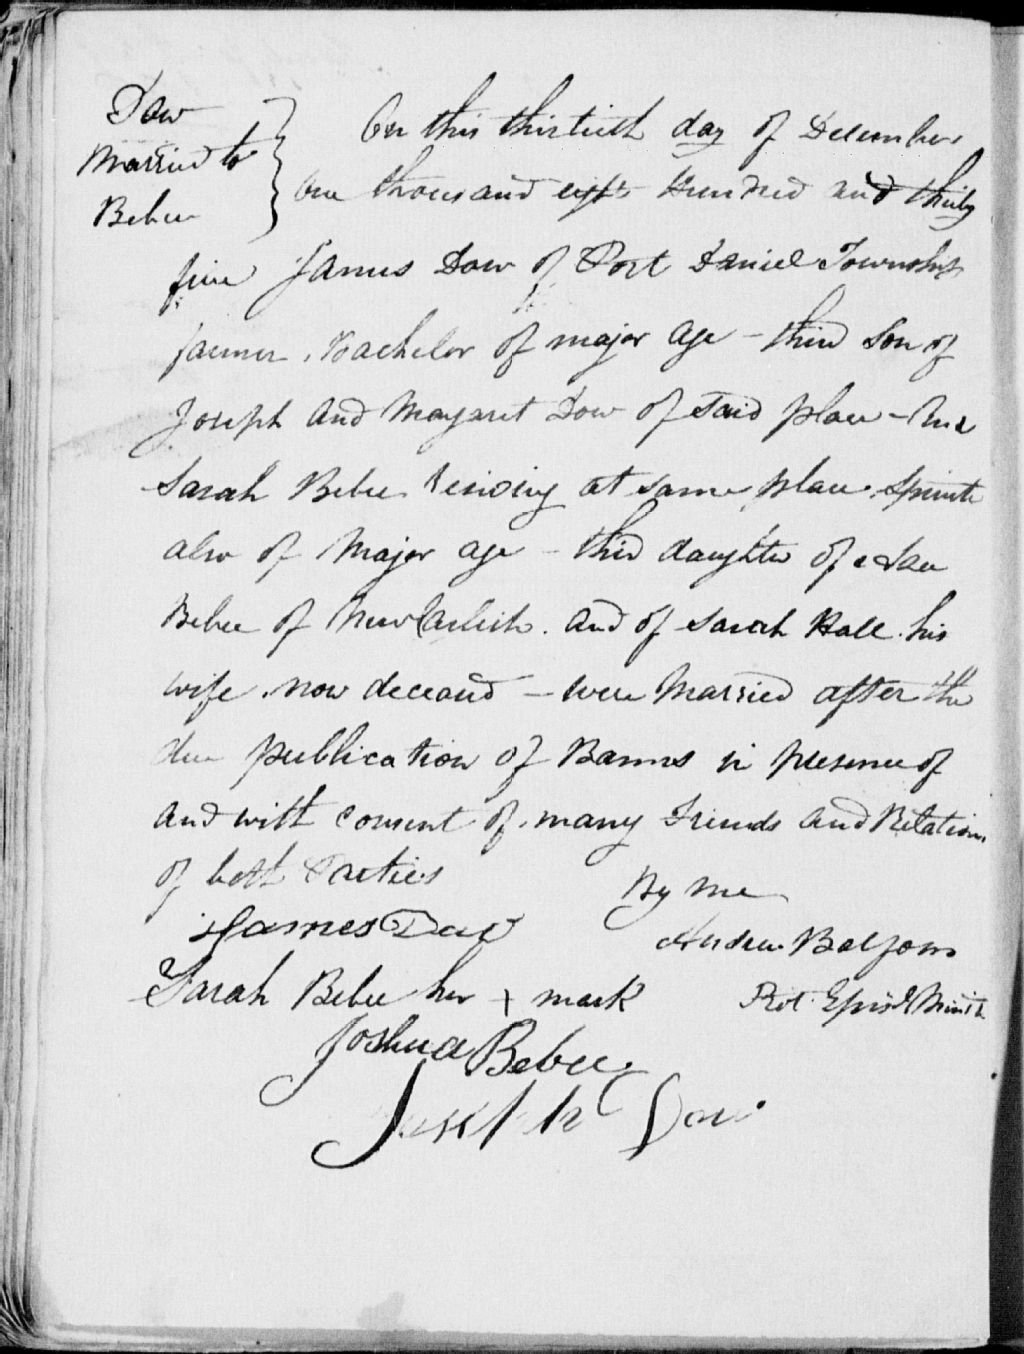 Dow
Married to
Bebee
On this thirtieth day of December
one thousand eight Hundred and thirty
five James Dow of Port Daniel Township
farmer, Bachelor of major age - third Son of
Joseph and Margaret Dow of said place - And
Sarah Bebee residing at same place. Spinster
also of Major age - third daughter of Isaac
Bebee of New Carlisle. and of Sarah Hall. his
wife. now deceased - were Married after the
due publication of Banns in presence of
and with consent of many Friends and Relations
of both Parties
By me
James Dow
Andrew Balfour
Sarah Bebee her x mark
Prot. Episl Minstr
Joshua Bebee.
Joseph Dow.